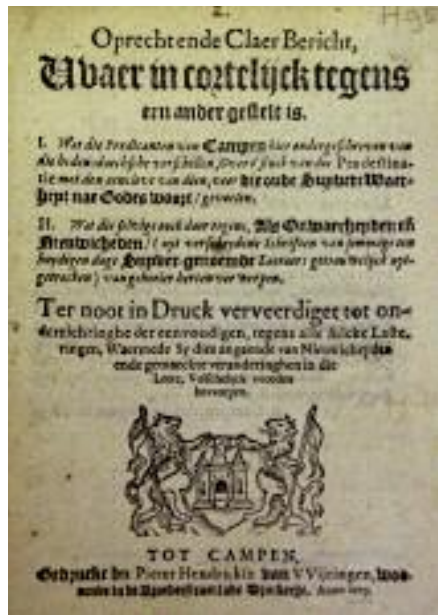 Oprecht ende Claer Bericht,
Waer in cortelijck tegens
een ander gestelt is.
I. Wat die Predicanten van Campen hier ondergeschreven van
die hedensdaechsche verschillen, van der Predestina-
tie met den aencleve van dien, voor die oude Suyvere Waer-
heyt nae Godes woort / gevoelen.
II. Wat die selvige oock daer tegens, Als Onwaerheyden eñ
Nieuwicheden / ( uyt verscheydene Schriften van sommige
heydigen dags Suyver-genoemde Leeraers getrouwelijck
getrocken ) van gheheler herten verwerpen.
Ter noot in Druck ververdiget tot on-
derrichtinghe der eenvoudigen, tegens alle sulcke Laste-
ringen, Waermede Sy dien angaende van Nieuwicheyden
ende gemaeckte veranderinghen in die
Leere, Valschelijck worden
TOT CAMPEN,
Gedruckt by Pieter Hendricksz van Wijringen, woo-
nende in de